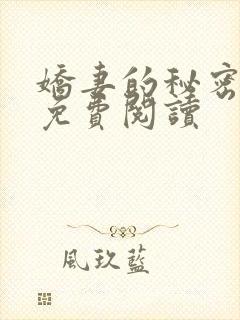 嬌妻的秘密
免費閱讀
風玖藍